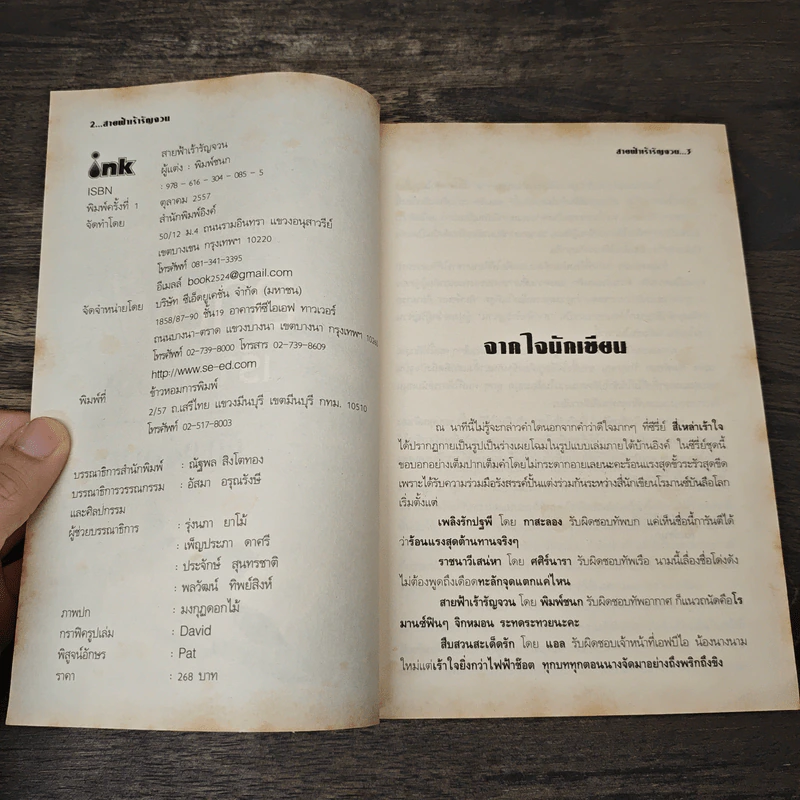 2...สายฟ้าเร้ารัญจวน
ink
สายฟ้าเร้ารัญจวน
ผู้แต่ง : พิมพ์ชนก
ISBN : 978 - 616 - 304 - 085 - 5
พิมพ์ครั้งที่ 1 ตุลาคม 2557
จัดทำโดย สำนักพิมพ์อิงค์
50/12 ม.4 ถนนรามอินทรา แขวงอนุสาวรีย์
เขตบางเขน กรุงเทพฯ 10220
โทรศัพท์ 081-341-3395
อีเมลล์ book2524@gmail.com
จัดจำหน่ายโดย บริษัท ซีเอ็ดยูเคชั่น จำกัด (มหาชน)
1858/87-90 ชั้น19 อาคารทีซีไอเอฟ ทาวเวอร์
ถนนบางนา-ตราด แขวงบางนา เขตบางนา กรุงเทพฯ 10260
โทรศัพท์ 02-739-8000 โทรสาร 02-739-8609
http://www.se-ed.com
พิมพ์ที่ ข้าวหอมการพิมพ์
2/57 ถ.เสรีไทย แขวงมีนบุรี เขตมีนบุรี กทม. 10510
โทรศัพท์ 02-517-8003
บรรณาธิการสำนักพิมพ์ : ณัฐพล สิงโตทอง
บรรณาธิการวรรณกรรม : อัสมา อรุณรังษี
และศิลปกรรม
ผู้ช่วยบรรณาธิการ : รุ่งนภา ยาโม้
: เพ็ญประภา ดาศรี
: ประจักษ์ สุนทรชาติ
: พลวัฒน์ ทิพย์สิงห์
ภาพปก : มงกุฎดอกไม้
กราฟิครูปเล่ม : David
พิสูจน์อักษร : Pat
ราคา : 268 บาท
สายฟ้าเร้ารัญจวน...3
จากใจนักเขียน
ณ นาทีนี้ไม่รู้จะกล่าวคำใดนอกจากคำว่าดีใจมากๆ ที่ซีรี่ย์ สี่เหล่าเร้าใจ
ได้ปรากฏกายเป็นรูปเป็นร่างเผยโฉมในรูปแบบเล่มภายใต้บ้านอิงค์ ในซีรี่ย์ชุดนี้
ขอบอกอย่างเต็มปากเต็มคำโดยไม่กระดากอายเลยนะคะร้อนแรงสุดขั้วระรัวสุดขีด
เพราะได้รับความร่วมมือรังสรรค์ปั้นแต่งร่วมกันระหว่างสี่นักเขียนโรมานซ์บันลือโลก
เริ่มตั้งแต่
เพลิงรักปฐพี โดย กาสะลอง รับผิดชอบทัพบก แค่เห็นชื่อนี้การันตีได้
ว่าร้อนแรงสุดต้านทานจริงๆ
ราชนาวีเสน่หา โดย ศศิร์นารา รับผิดชอบทัพเรือ นามนี้เลื่องชื่อโด่งดัง
ไม่ต้องพูดถึงเดือดทะลักจุดแตกแค่ไหน
สายฟ้าเร้ารัญจวน โดย พิมพ์ชนก รับผิดชอบทัพอากาศ ก็แนวถนัดคือโร
มานซ์ฟินๆ จิกหมอน ระทดระทวยนะคะ
สืบสวนสะเด็ดรัก โดย แอล รับผิดชอบเจ้าหน้าที่เอฟบีไอ น้องนางนาม
ใหม่แต่เร้าใจยิ่งกว่าไฟฟ้าช๊อต ทุกบททุกตอนนางจัดมาอย่างถึงพริกถึงขิง